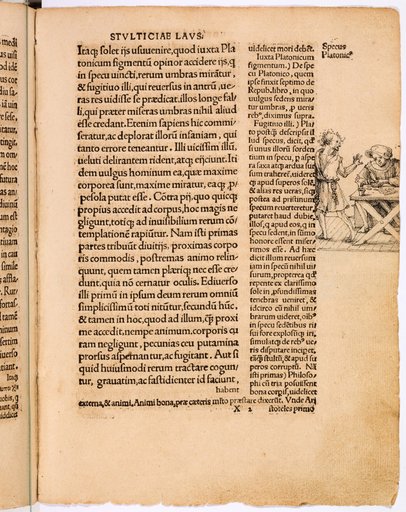 STVLTICIAE LAVS.
Itaq; solet ijs usuuenire, quod iuxta Pla
tonicum figmentū opinor accidere ijs, q
in specu uincti, rerum umbras mirātur,
& fugitiuo illi, qui reuersus in antrū, ue-
ras res uidisse se prædicat, illos longe fal
li, qui præter miseras umbras nihil aliud
esse credant. Etenim sapiens hic commi
seratur, ac deplorat illorū insaniam, qui
tanto errore teneantur. Illi uicissim illū,
ueluti delirantem rident, atq; eijciunt. Iti
dem uulgus hominum ea, quæ maxime
corporea sunt, maxime miratur, eaq; ꝓ
pesola putat esse. Cōtra pij, quo quicq;
propius accedit ad corpus, hoc magis ne
gligunt, totiq; ad inuisibilium rerum cō
templationē rapiūtur. Nam isti primas
partes tribuūt diuitijs, proximas corpo
ris commodis, postremas animo relin-
quunt, quem tamen pleriq; nec esse cre
dunt, quia nō cernatur oculis. Ediuerso
illi primū in ipsum deum rerum omniū
simplicissimū toti nitūtur, secundū hūc,
& tamen in hoc, quod ad illum, q̃ proxi
me accedit, nempe animum. corporis cu
ram negligunt, pecunias ceu putamina
prorsus aspernantur, ac fugitant. Aut si
quid huiusmodi rerum tractare cogun/
tur, grauatim, ac fastidienter id faciunt,
habent
uidelicet mori debēt.
Iuxta Platonicum
figmentum.) De spe
cu Platonico, quem
ipse finxit septimo de
Repub. libro, in quo
uulgus sedens mira-
tur umbras, ꝓ ueris
rebꝰ, diximus supra.
Fugitiuo illi.) Pla
to postq̃ descripsit il
lud specus, dicit, q
siunus illorū sedem
tium in specu, ꝑ aspe
ra saxa atq; ardua sur
sum traheret, uideret
q̃ apud superos solē,
& alias res ueras, siq;
postea ad pristinum
specum reuerteretur,
putaret haud dubie,
illos, q̃ apud eos, q in
specu sedent, in sūmo
honore essent miser-
rimos esse. Ad hæc
dicit illum reuersum
iam in specū nihil ui
surum, propterea qd
repente ex clarissimo
sole in ꝓfundissimas
tenebras ueniret, &
idcirco cū nihil um-
brarum uideret, oib⁹
in specu sedētibus ri
sui fore explosūq; iri,
simulatq; de rebꝰ ue
ris disputare incipiet,
tāq̃ stultū, & apud su
peros corruptū. Nā
isti primas) Philoso
phi cū tria posuissent
bona corpis, uidelicet
externa, & animi, Animi bona, præ cæteris īnsto præstare dixerūt. Vnde Ari
X 2
stoteles primo
Specus
Platonicꝰ